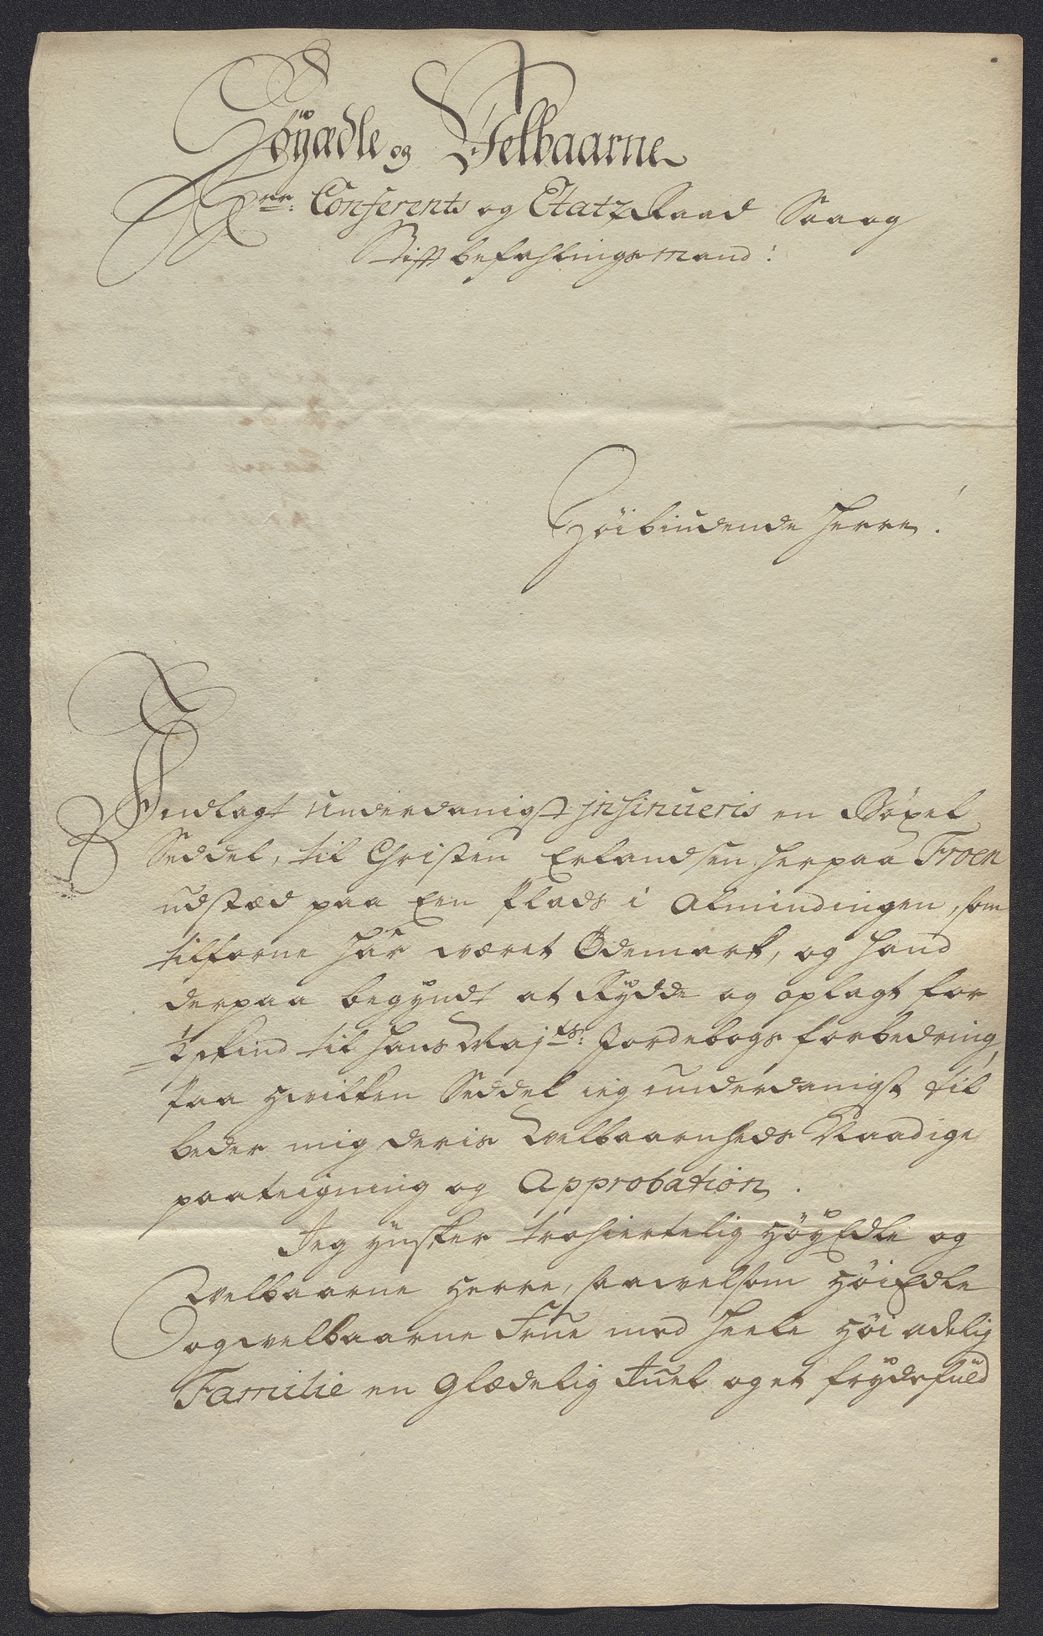 Høyædle og Velbaarne
Hrr: Conferents og Etatz Raad Saa og
Stiftbefahlings mand:
Høibiudende Herre!
Indlagt underdanigst insinueris en Böxel
Seddel, til Christen Erlandsen herpaa Froen
udstæd paa Een Plads i Almindingen, som
tilforne hâr været Ödemark, og hand
derpaa begÿndt at Rÿdde og oplagt for
½ skind til Hans Majts: Jordebogs forbedring,
Paa hvilken Seddel ieg underdanigst til
beder mig deris Velbaarnheds Naadige
paateigning og Approbation.
Jeg ÿnsker trohiertelig HöyEdle og
Welbaarne Herre, saavelsom HöiEdle
og velbaarne Frue med heele Höi adelig
Familie en Glædelig Juel og et frÿdefuld